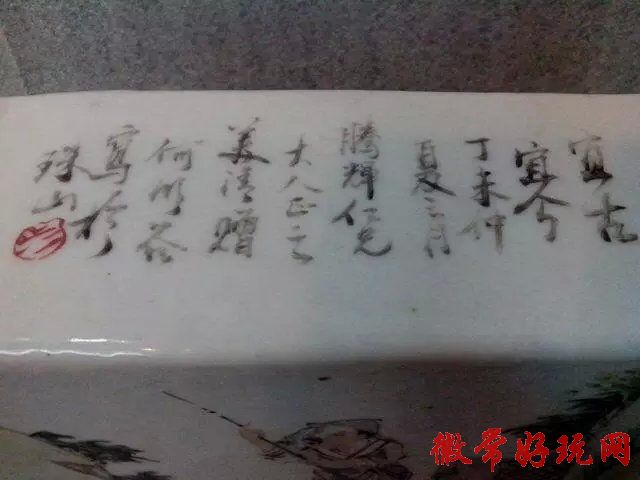 宜古
宜今
丁未仲
夏之月
腾辉仁兄
大人正之
姜清赠
何明谷
写於
珠山
徽常好玩网